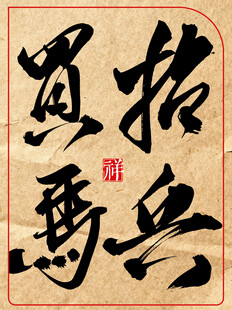 招兵
買馬
祥